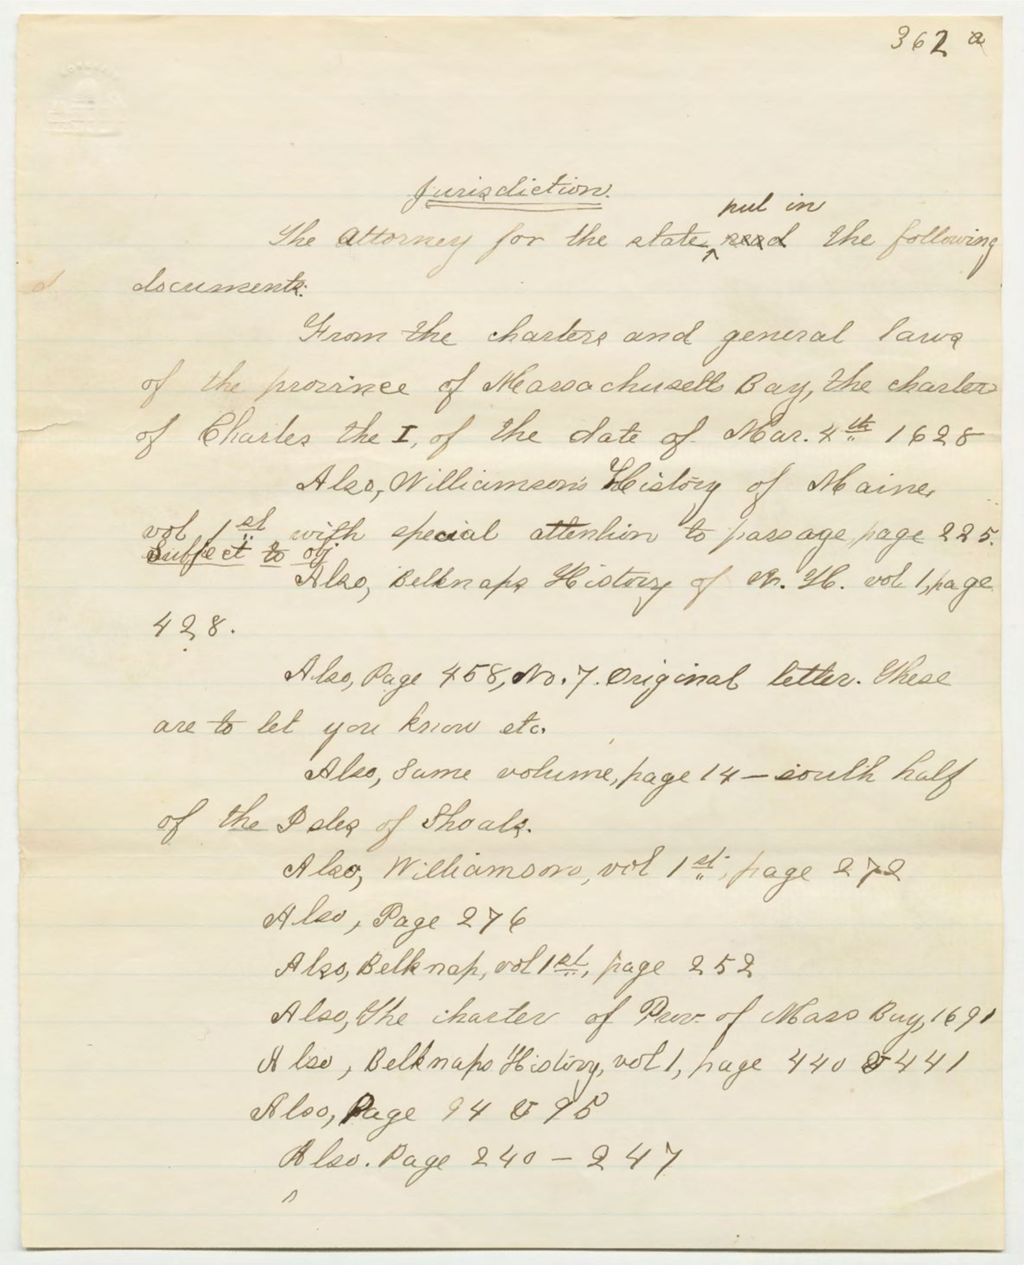 362 a
Jurisdiction.
put in
The Attorney for the state, read the following
documents.
From the charters and general laws
of the province of Massachusetts Bay, the charter
of Charles the I, of the date of Mar. 4th 1628
Also, Williamson's History of Maine,
vol 1st with special attention to passage, page 225.
Subject to obj.
Also, Belknaps History of N. H. vol 1, page
428.
Also, Page 458, No. 7. Original letter. These
are to let you know etc.
Also, Same volume, page 14 - south half
of the Isles of Shoals.
Also, Williamson, vol 1st, page 272
Also, Page 276
Also, Belknap, vol 1st, page 252
Also, The charter of Prov. of Mass Bay, 1691
Also, Belknaps History, vol 1, page 440 & 441
Also, Page 94 & 95
Also. Page 240 - 247